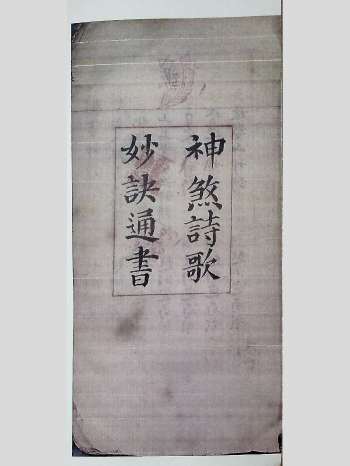 神煞詩歌
妙訣通書